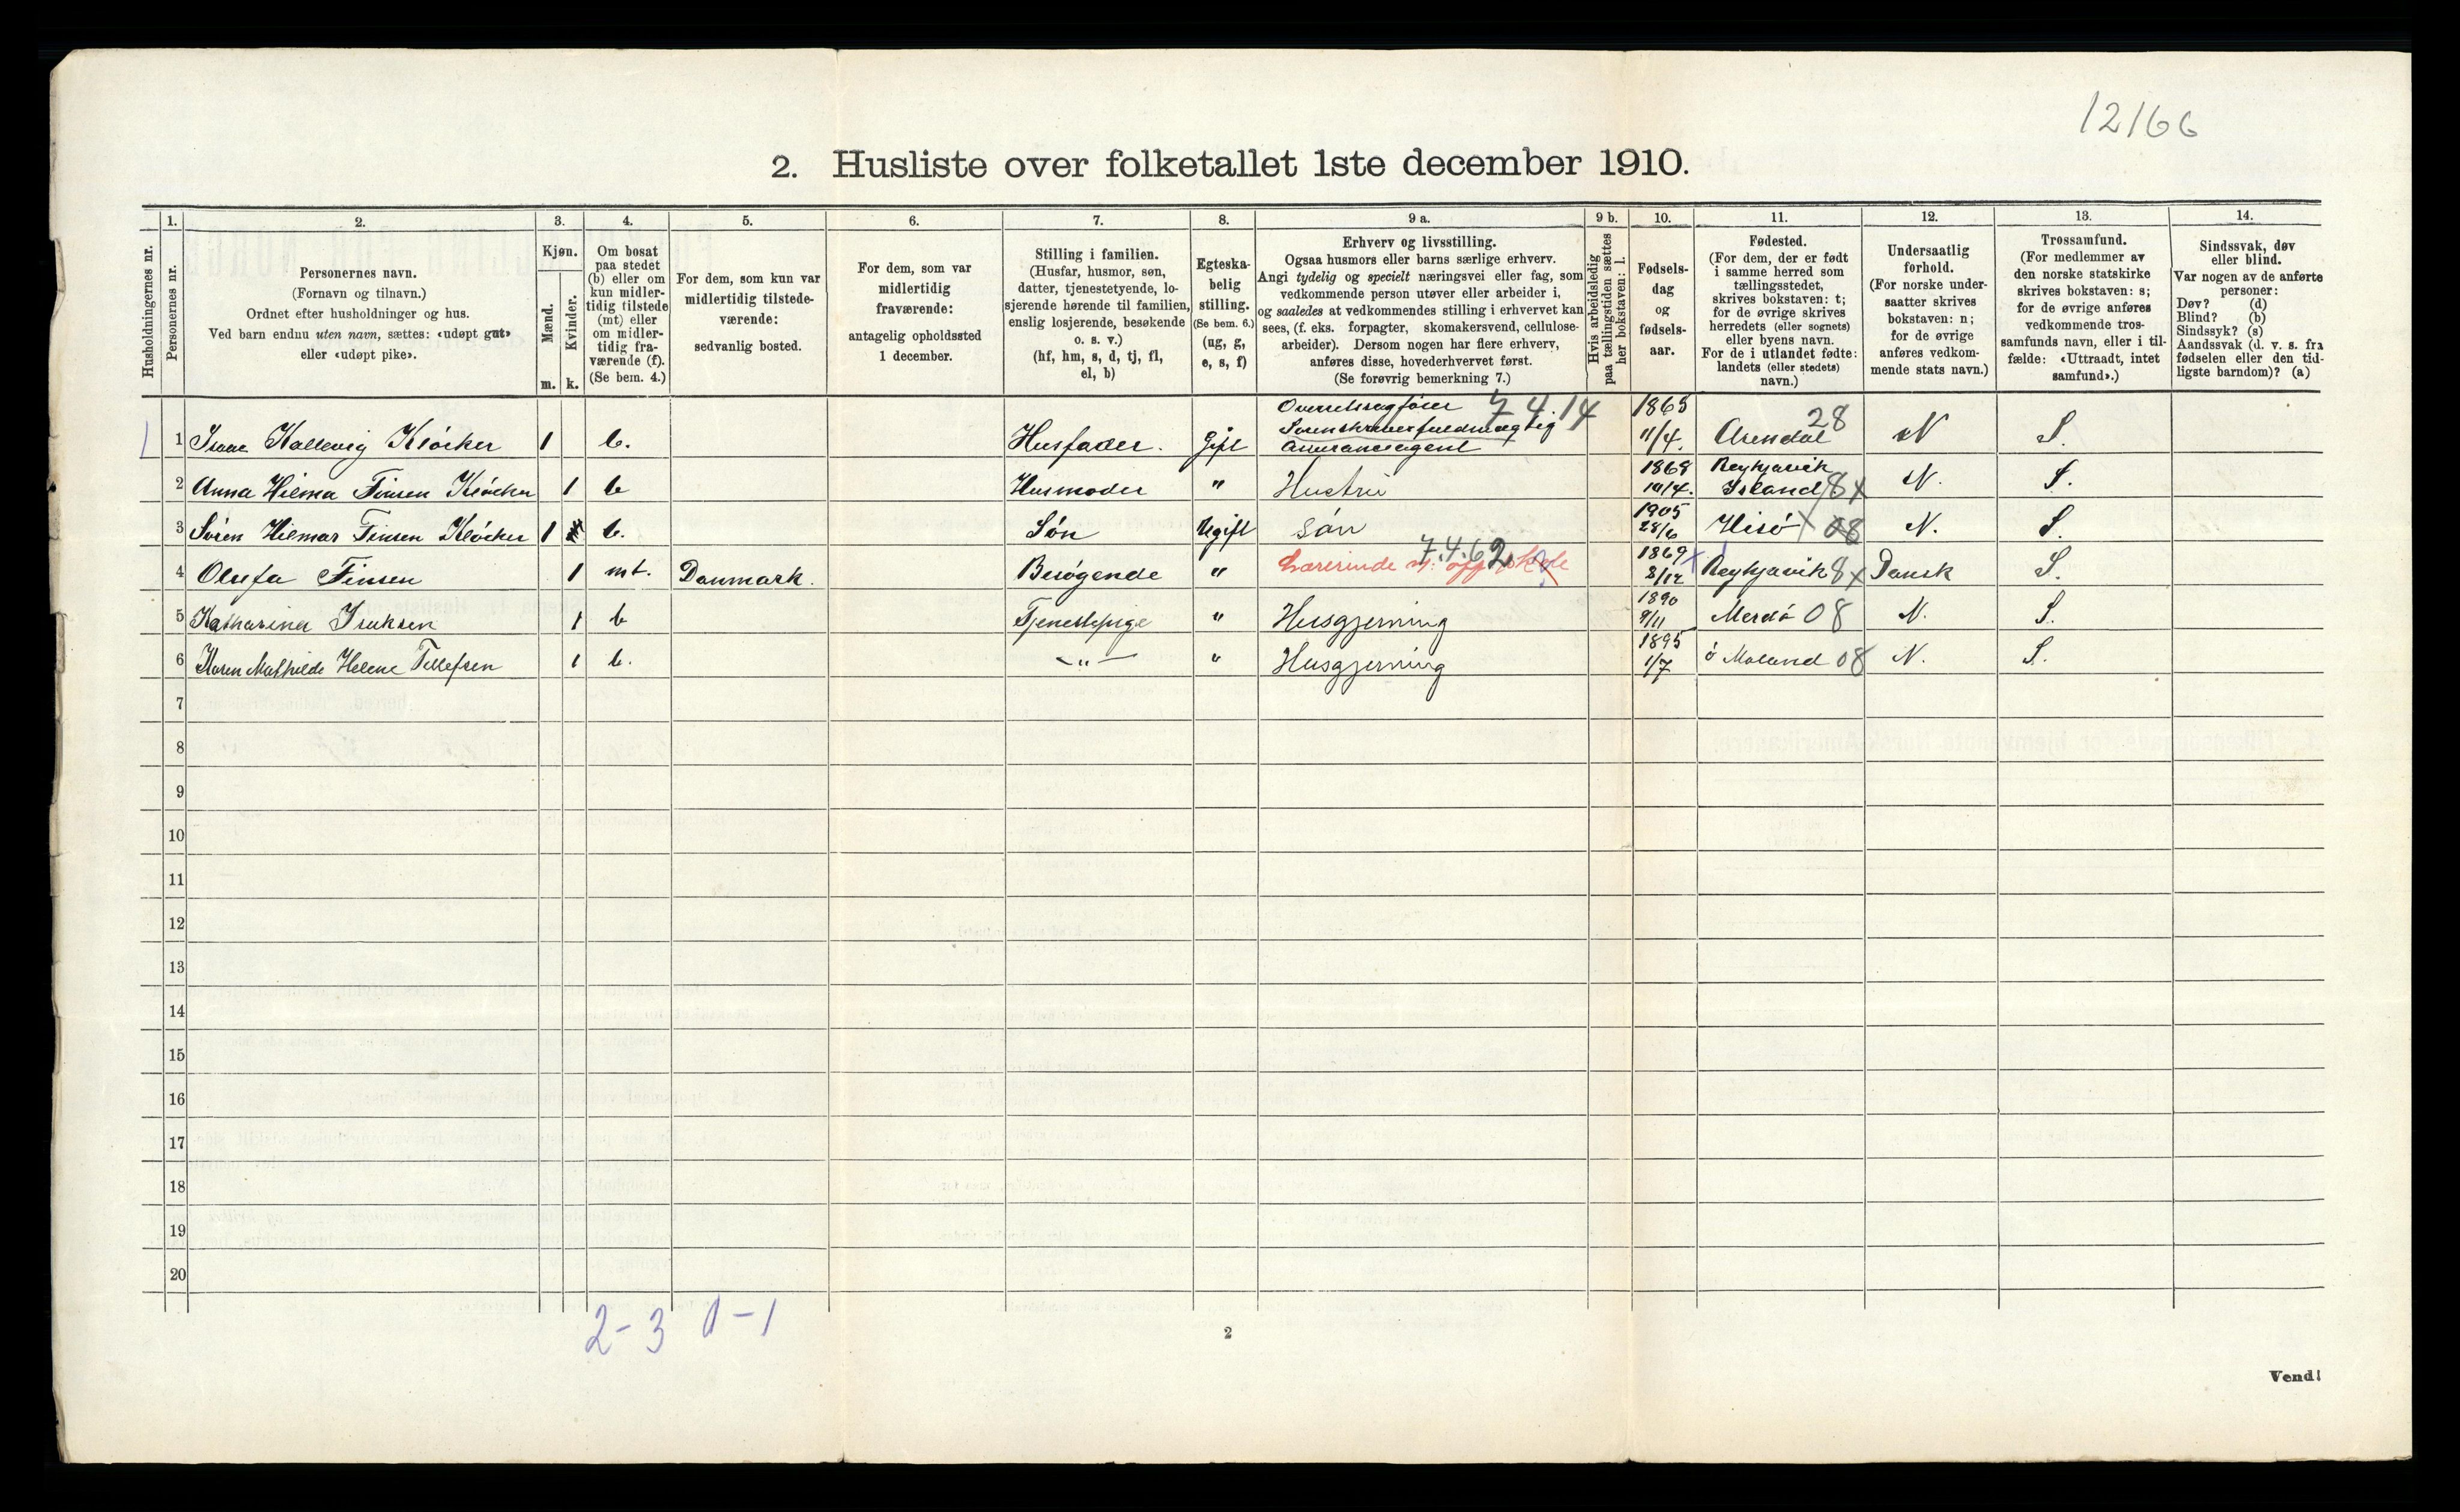 12166
2. Husliste over folketallet 1ste december 1910.
Husholdningernes nr.
1.
Personernes nr.
2.
Personernes navn.
(Fornavn og tilnavn.)
Ordnet efter husholdninger og hus.
Ved barn endnu uten navn, sættes: «udøpt gut»
eller «udøpt pike».
3.
Kjøn.
Mænd.
Kvinder.
m. k.
4.
Om bosat
paa stedet
(b) eller om
kun midler-
tidig tilstede
(mt) eller
om midler-
tidig fra-
værende (f).
(Se bem. 4.)
5.
For dem, som kun var
midlertidig tilstede-
værende:
sedvanlig bosted.
6.
For dem, som var
midlertidig
fraværende:
antagelig opholdssted
1 december.
7.
Stilling i familien.
(Husfar, husmor, søn,
datter, tjenestetyende, lo-
sjerende hørende til familien,
enslig losjerende, besøkende
o. s. v.)
(hf, hm, s, d, tj, fl,
el, b)
8.
Egteska-
belig
stilling.
(Se bem. 6.)
(ug, g,
e, s, f)
9 a.
Erhverv og livsstilling.
Ogsaa husmors eller barns særlige erhverv.
Angi tydelig og specielt næringsvei eller fag, som
vedkommende person utøver eller arbeider i,
og saaledes at vedkommendes stilling i erhvervet kan
sees, (f. eks. forpagter, skomakersvend, cellulose-
arbeider). Dersom nogen har flere erhverv,
anføres disse, hovederhvervet først.
(Se forøvrig bemerkning 7.)
9 b.
Hvis arbeidsledig
paa tællingstiden sættes
her bokstaven: l.
10.
Fødsels-
dag
og
fødsels-
aar.
11.
Fødested.
(For dem, der er født
i samme herred som
tællingsstedet,
skrives bokstaven: t;
for de øvrige skrives
herredets (eller sognets)
eller byens navn.
For de i utlandet fødte:
landets (eller stedets)
navn.)
12.
Undersaatlig
forhold.
(For norske under-
saatter skrives
bokstaven: n;
for de øvrige
anføres vedkom-
mende stats navn.)
13.
Trossamfund.
(For medlemmer av
den norske statskirke
skrives bokstaven: s;
for de øvrige anføres
vedkommende tros-
samfunds navn, eller i til-
fælde: «Uttraadt, intet
samfund».)
14.
Sindssvak, døv
eller blind.
Var nogen av de anførte
personer:
Døv? (d)
Blind? (b)
Sindssyk? (s)
Aandssvak (d. v. s. fra
fødselen eller den tid-
ligste barndom)? (a)
Overretssagfører 7.4.14 1865
Sorenskriverfuldmægtig 28
1 1 Isaac Kallevig Kløcker 1 b. Husfader. Gift Assuranceagent 11/4. Arendal N S.
1868 Reykjavik
2 Anna Hilma Finsen Kløcker 1 b Husmoder " Hustru 19/4. Island 8x N. S.
1905
3 Søren Hilmar Finsen Kløcker 1 b. Søn Ugift søn 28/6 Hisø x 08 N. S.
7.4.62 1869
4 Olufa Finsen 1 mt. Danmark. Besøgende " Lærerinde 2/12 Reykjavik 8x Dansk S.
1890
5 Katharina Isaksen 1 b Tjenestepige " Husgjerning 9/11 Merdø 08 N. S.
1895
6 Karen Mathilde Helene Tellefsen 1 b. — " — " Husgjerning 1/7 ø Moland 08 N. S.
7
8
9
10
11
12
13
14
15
16
17
18
19
20
2-3 0-1
2
Vend!